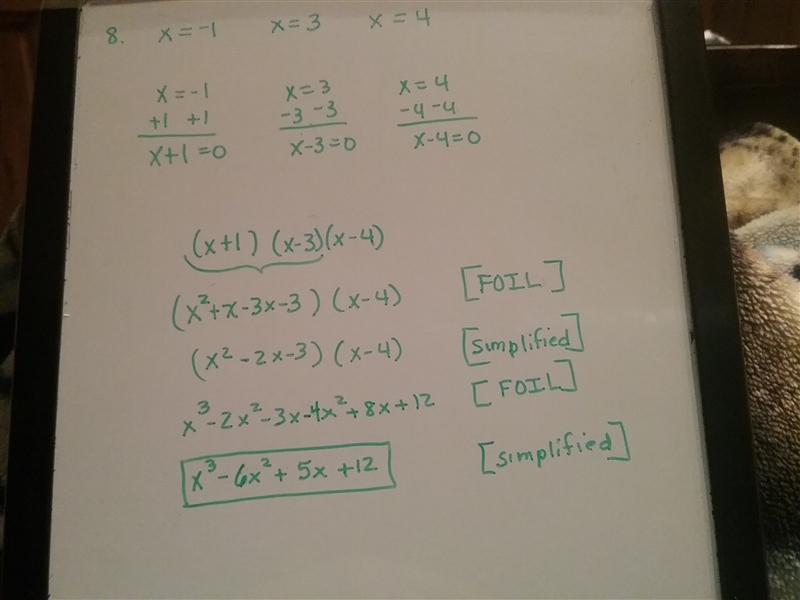 8. x = -1 x = 3 x = 4
x = -1 x = 3 x = 4
+1 +1 -3 -3 -4 -4
x+1 = 0 x-3 = 0 x-4 = 0
(x+1) (x-3)(x-4)
(x²+x-3x-3) (x-4) [FOIL]
(x² -2x-3) (x-4) [simplified]
x³-2x²-3x-4x²+8x+12 [FOIL]
x³-6x²+5x+12 [simplified]